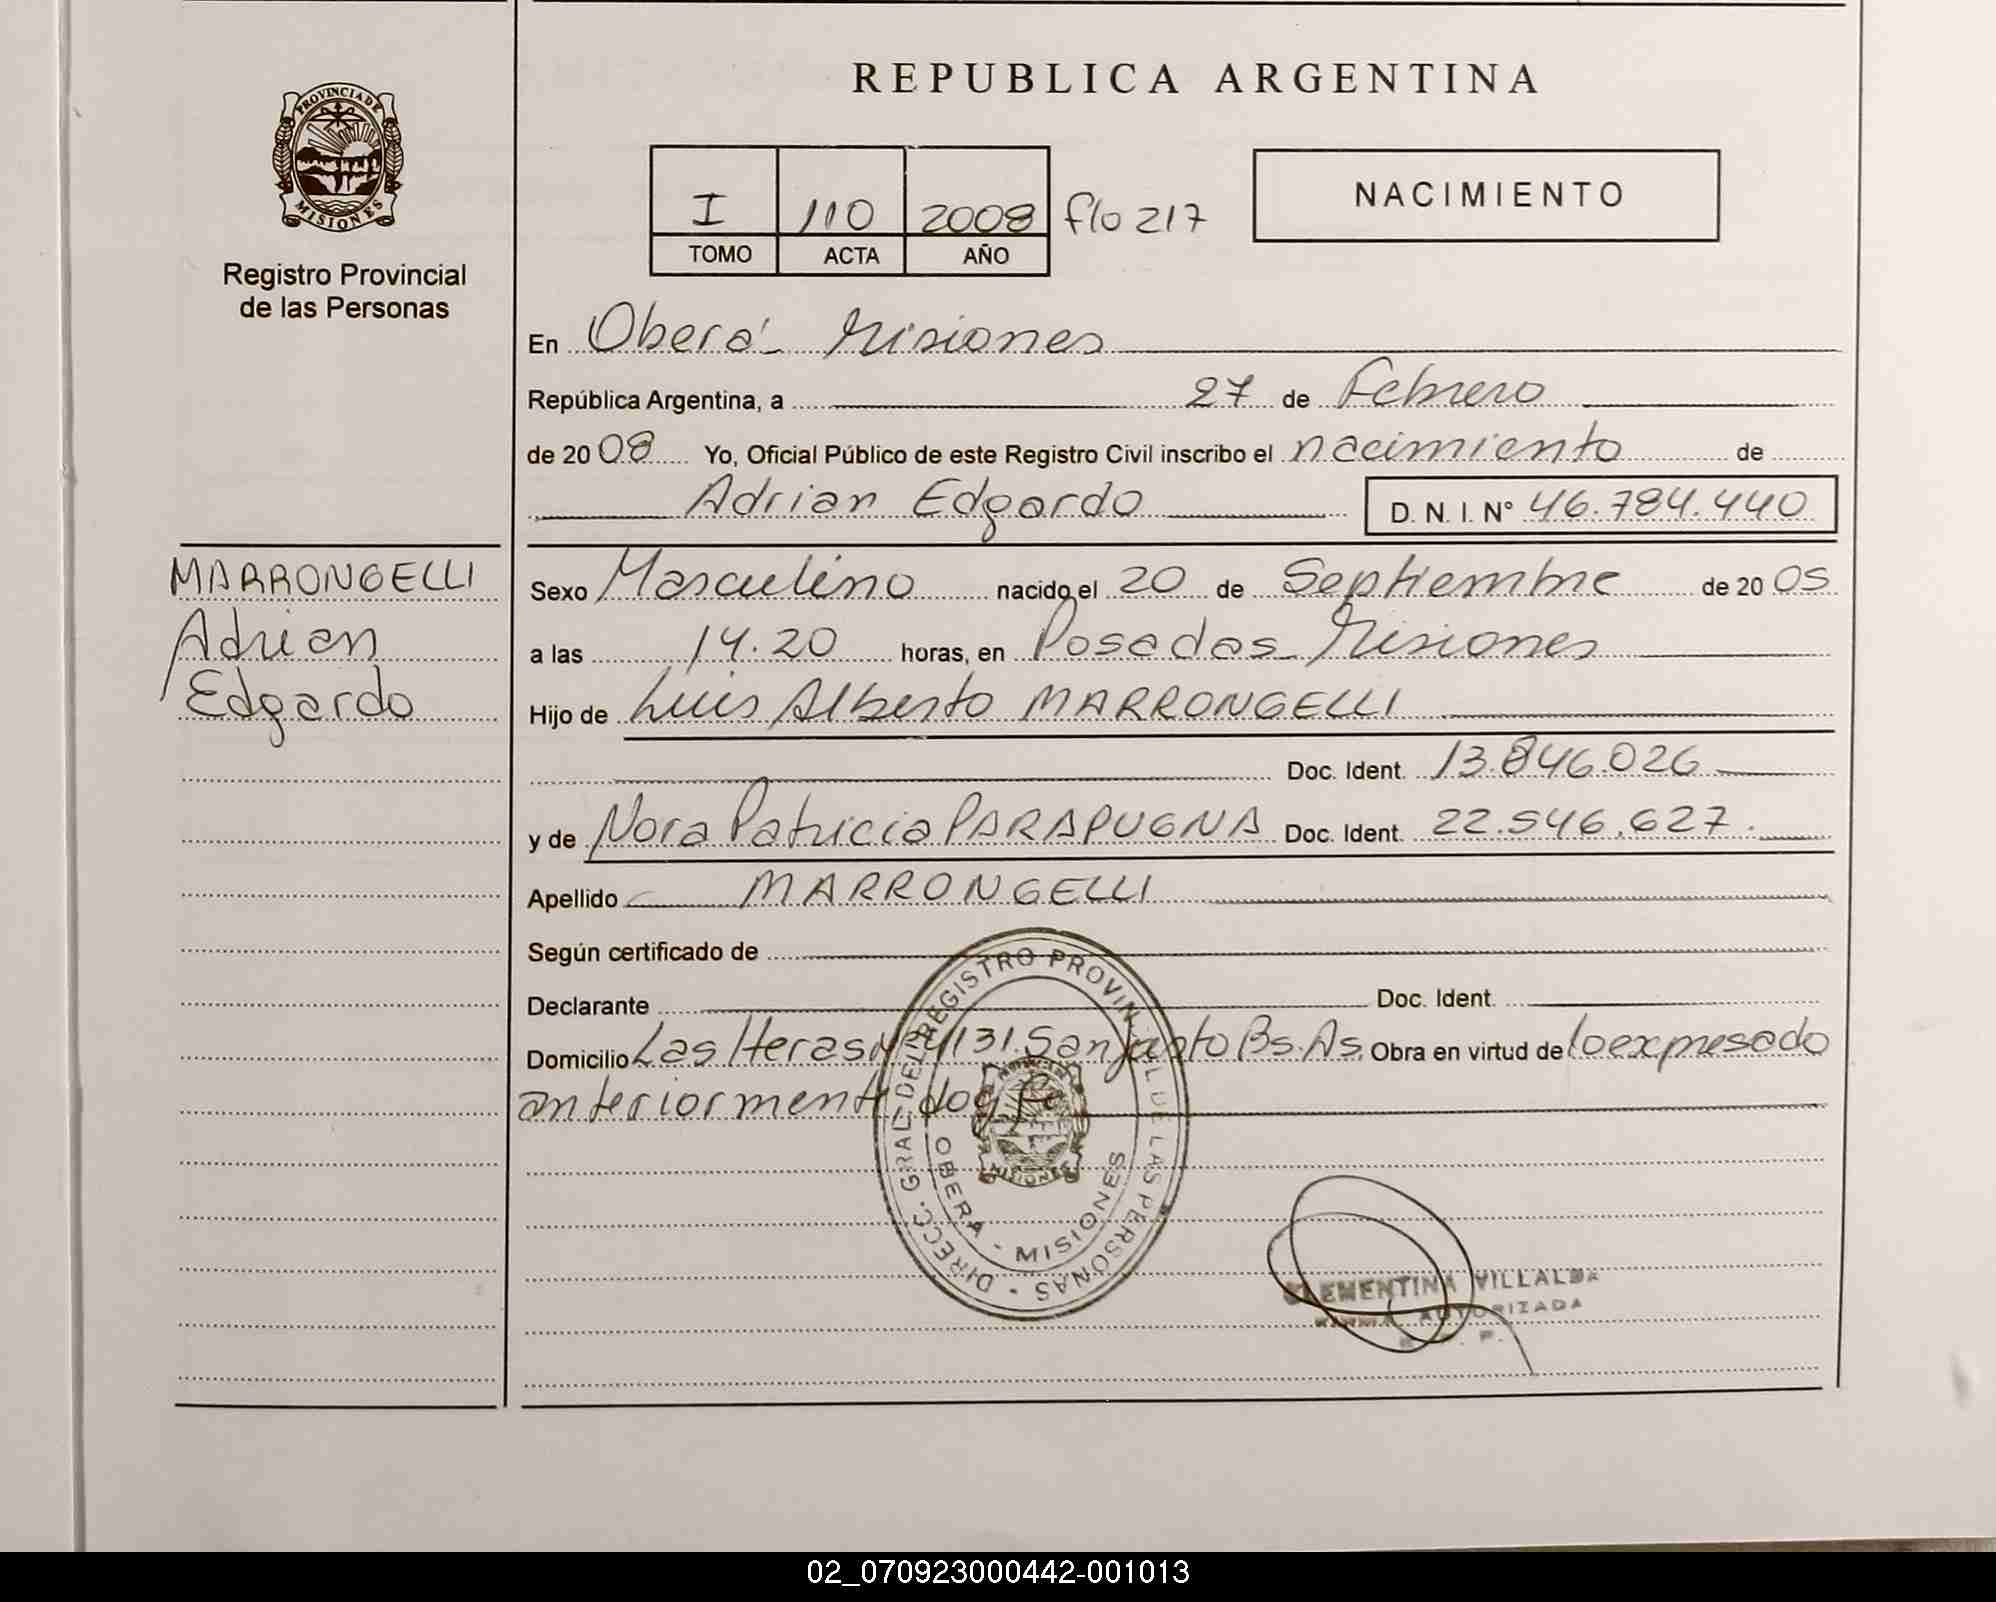 REPUBLICA ARGENTINA
PROVINCIA DE MISIONES
Registro Provincial
de las Personas
I 110 2008 flo 217
TOMO ACTA AÑO
NACIMIENTO
En Oberá Misiones
República Argentina, a 27 de Febrero
de 2008 Yo, Oficial Público de este Registro Civil inscribo el nacimiento de
Adrian Edgardo D. N. I. N° 46.784.440
MARRONGELLI
Adrian
Edgardo
Sexo Masculino nacido el 20 de Septiembre de 2005
a las 14.20 horas, en Posadas Misiones
Hijo de Luis Alberto MARRONGELLI
Doc. Ident. 13.846.026
y de Nora Patricia PARAPUGNA Doc. Ident. 22.546.627.
Apellido MARRONGELLI
Según certificado de
Declarante Doc. Ident.
Domicilio Las Heras Nº 4131 San Justo Bs. As. Obra en virtud de lo expresado
anteriormente doy fe
DIRECC. GRAL. DEL REGISTRO PROVIN. DE LAS PERSONAS
OBERA - MISIONES
MISIONES
CLEMENTINA VILLALBA
FIRMA AUTORIZADA
02_070923000442-001013